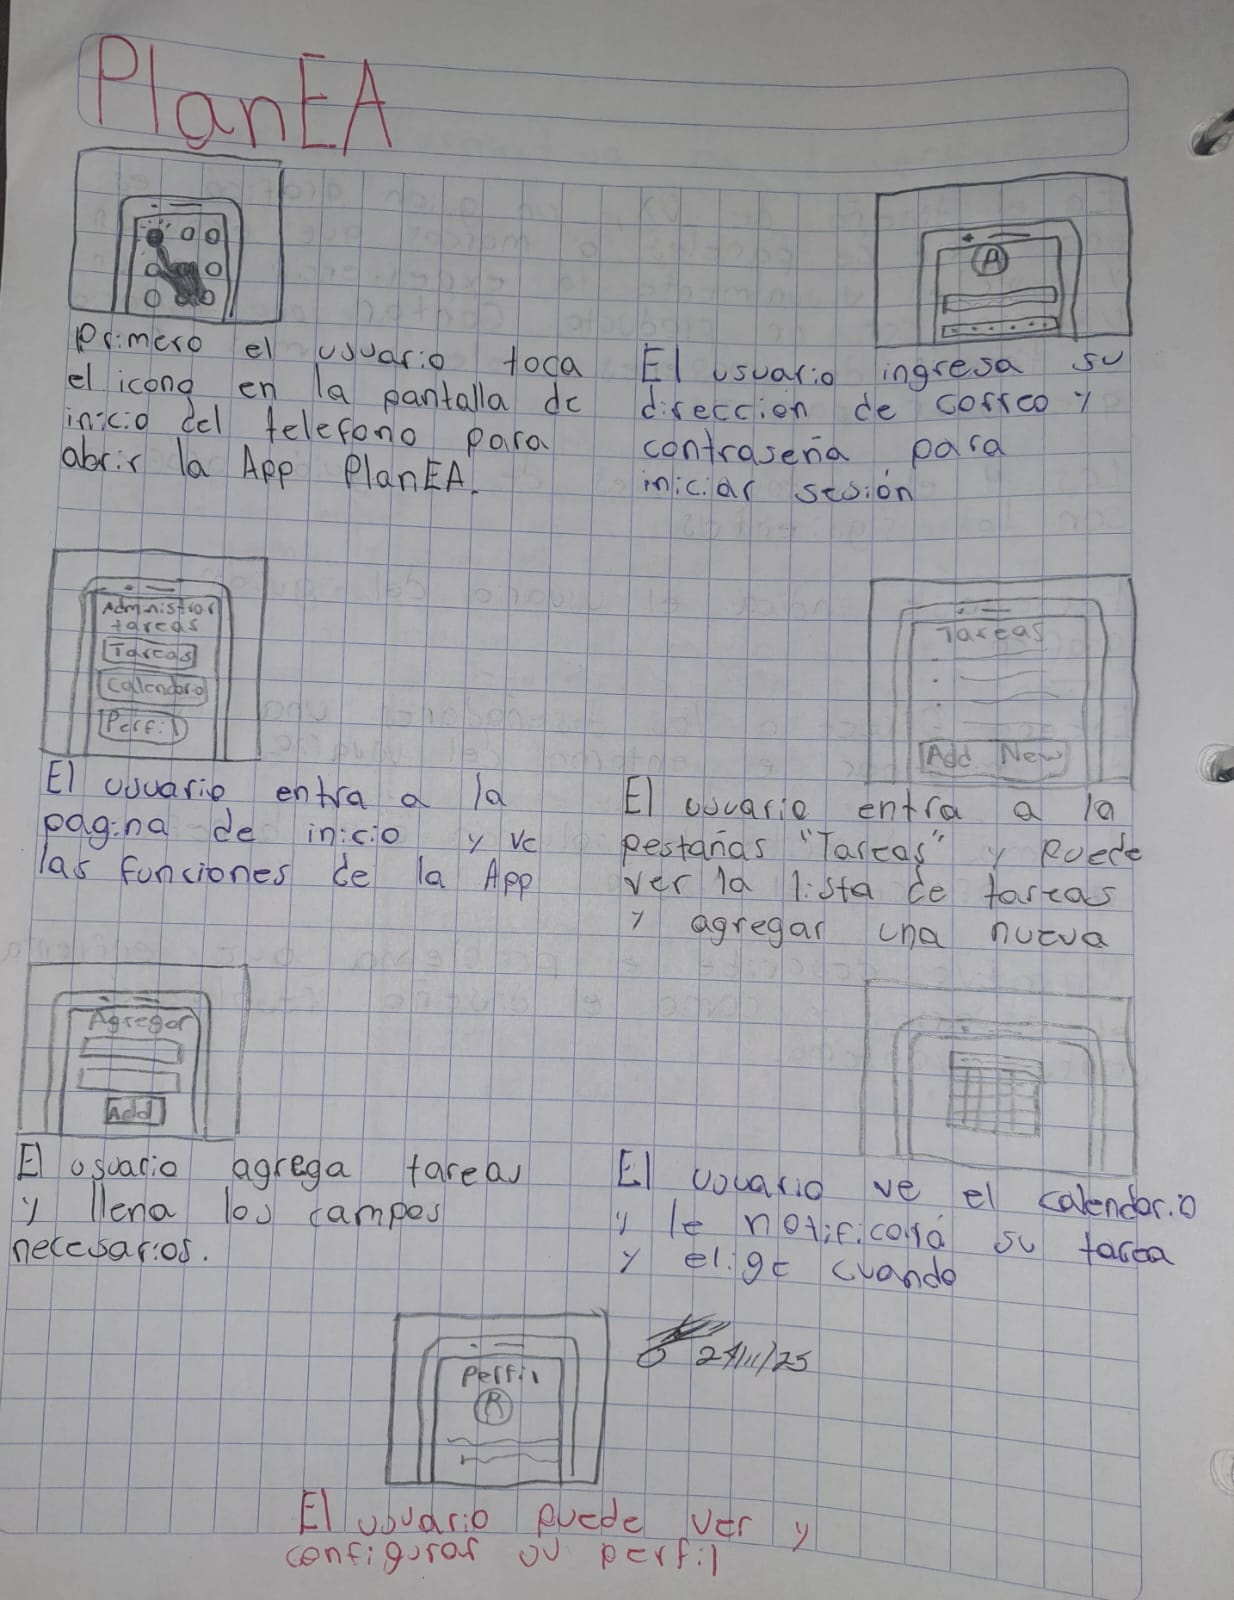 PlanEA
Primero el usuario toca
el icono en la pantalla de
inicio del telefono para
abrir la App PlanEA.
A
El usuario ingresa su
dirección de correo y
contraseña para
iniciar sesión
Administrar
tareas
Tareas
Calendario
Perfil
El usuario entra a la
pagina de inicio y ve
las funciones de la App
Tareas
Add New
El usuario entra a la
pestañas "Tareas" y puede
ver la lista de tareas
y agregar una nueva
Agregar
Add
El usuario agrega tareas
y llena los campos
necesarios.
El usuario ve el calendario
y le notificará su tarea
y elige cuando
Perfil
El usuario puede ver y
configurar su perfil